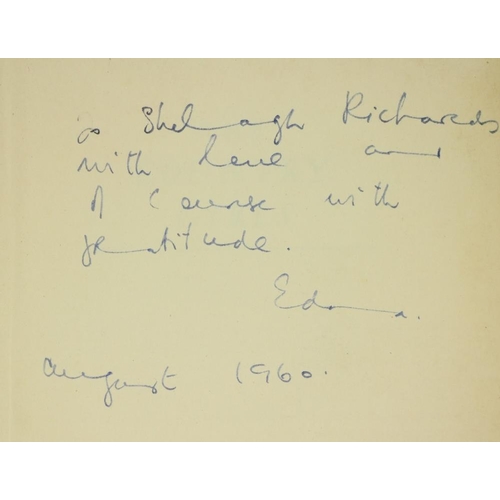 to Shelagh Richards
with love and
of course with
gratitude.
Edna.
August 1960.